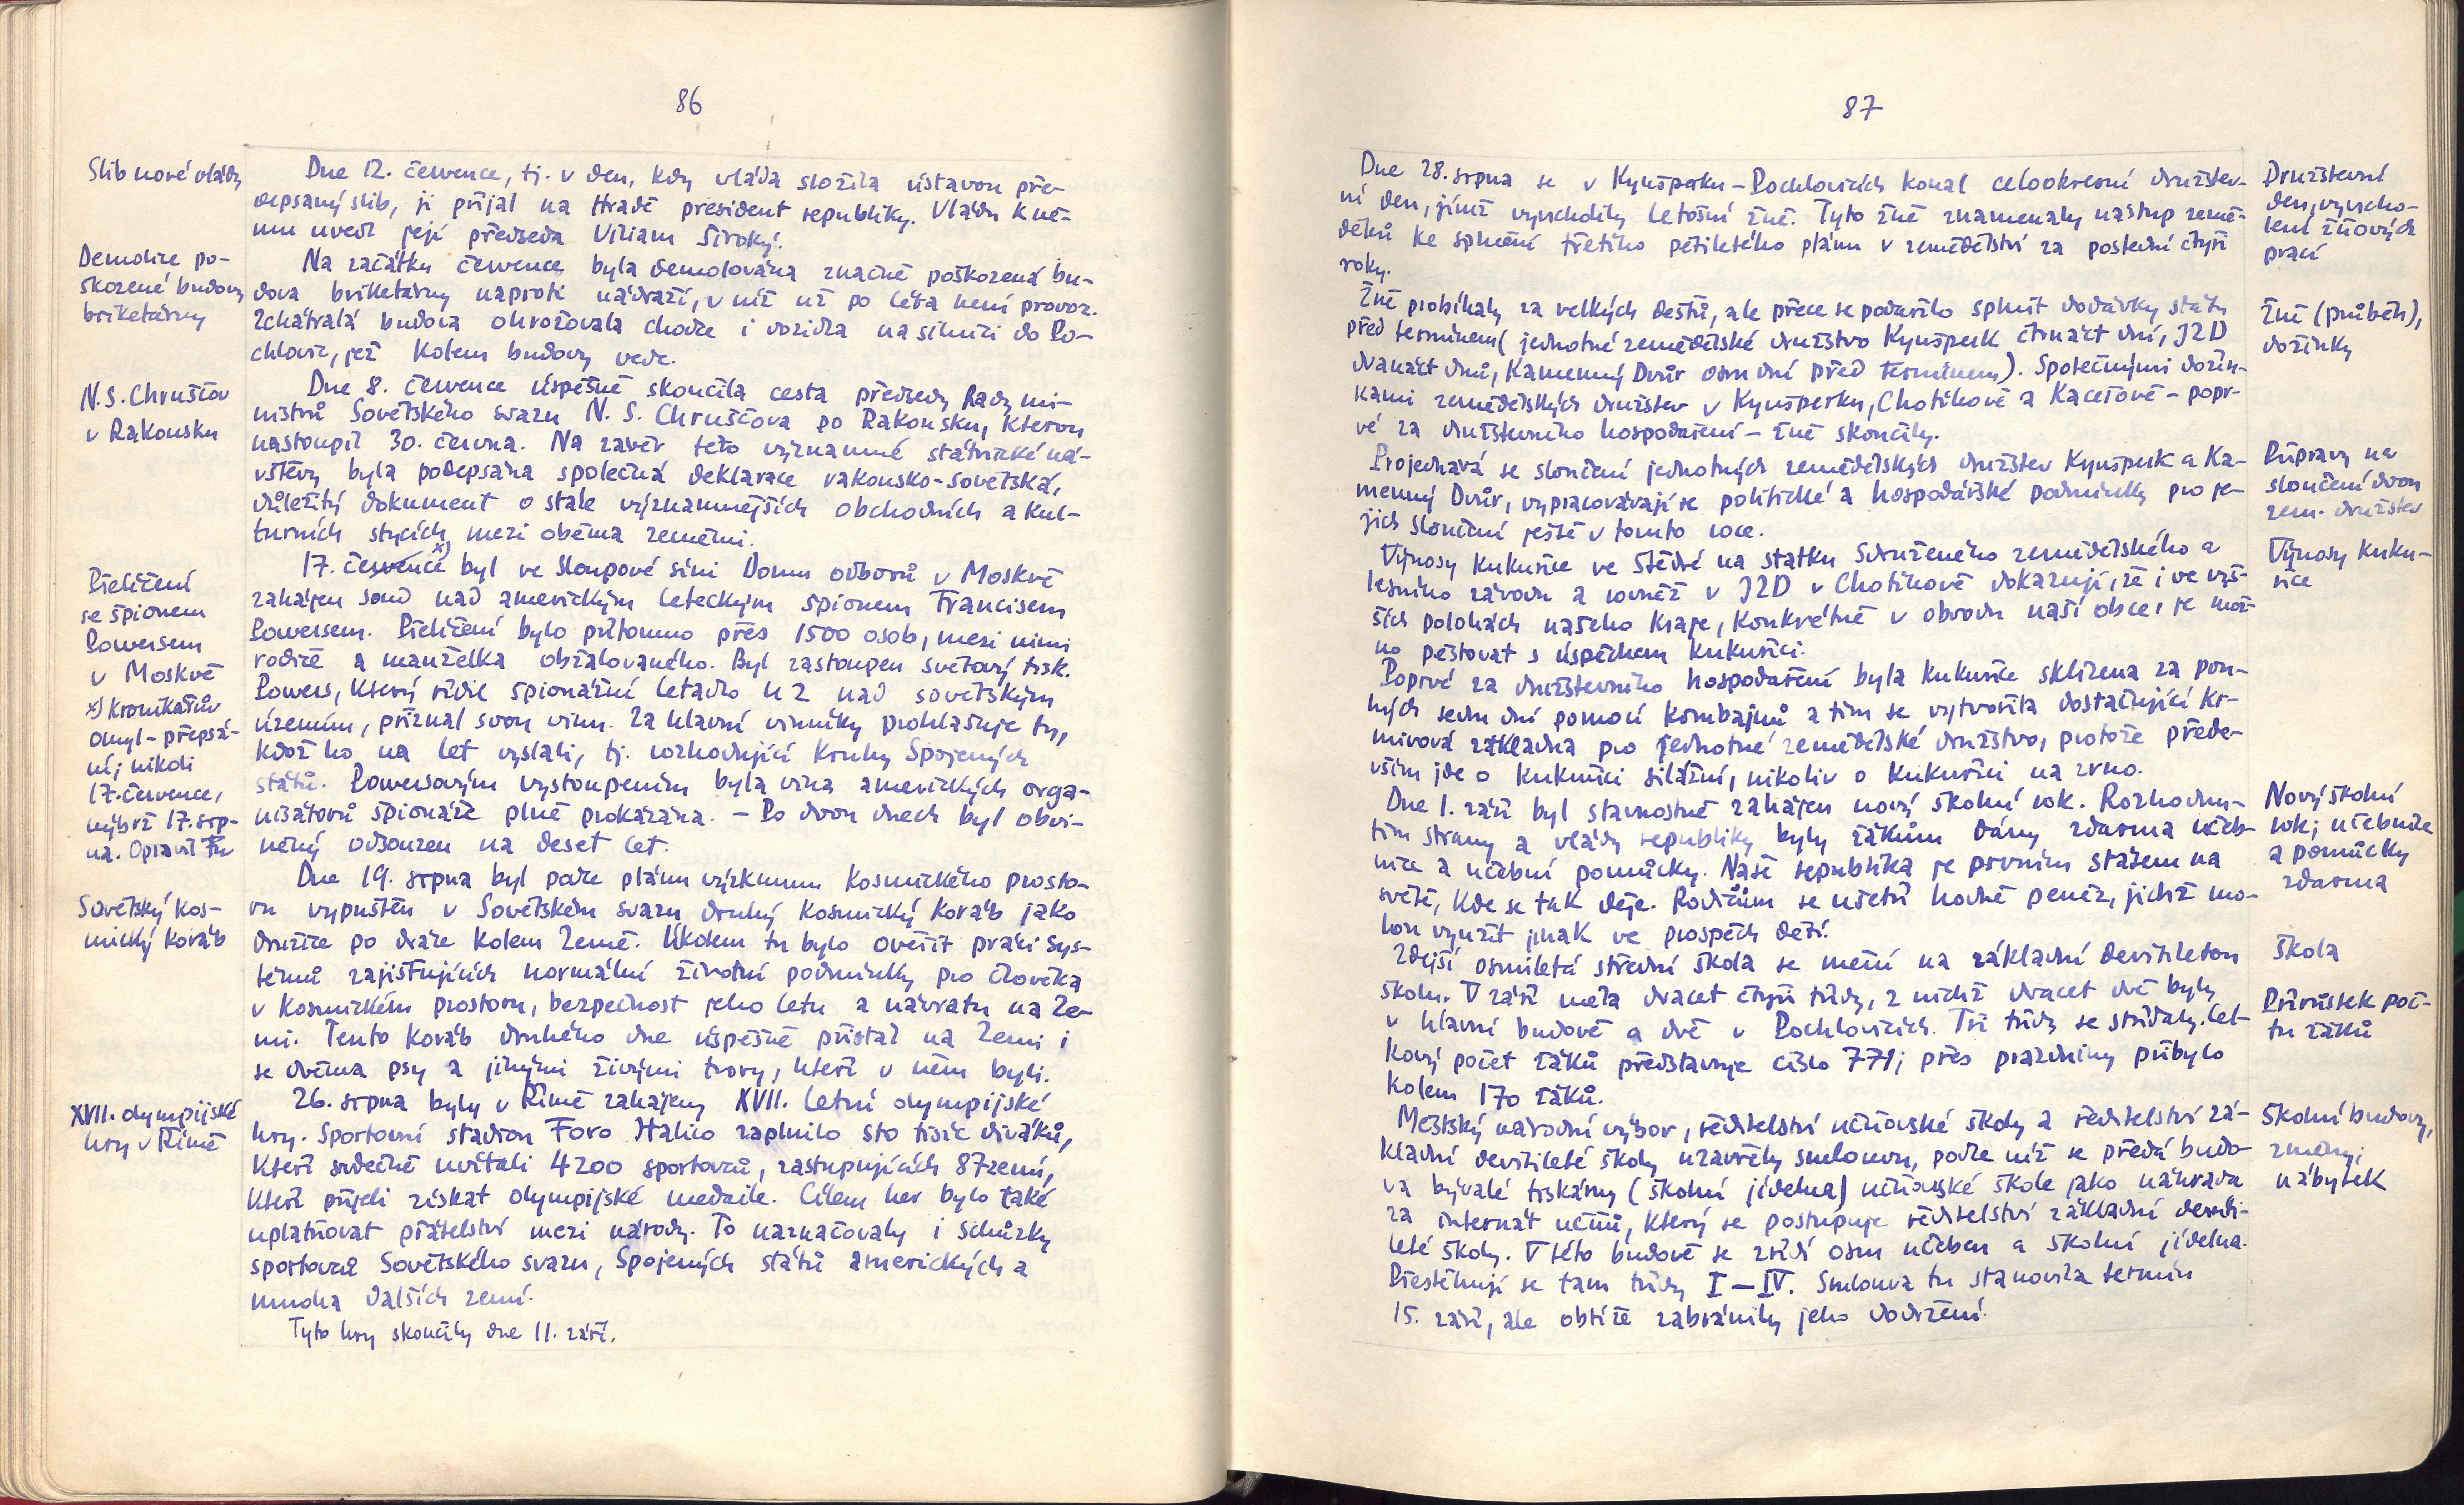 86
Slib nové vlády
Dne 12. července, tj. v den, kdy vláda složila ústavou pře-
depsaný slib, ji přijal na Hradě president republiky. Vládu k ně-
mu uvedl její předseda Viliam Široký.
Demolice po-
škozené budovy
briketárny
Na začátku července byla demolována značně poškozená bu-
dova briketárny naproti nádraží, v níž už po léta není provoz.
Zchátralá budova ohrožovala chodce i vozidla na silnici do Po-
chlovic, jež kolem budovy vede.
N. S. Chruščov
v Rakousku
Dne 8. července úspěšně skončila cesta předsedy Rady mi-
nistrů Sovětského svazu N. S. Chruščova po Rakousku, kterou
nastoupil 30. června. Na závěr této významné státnické ná-
vštěvy byla podepsána společná deklarace rakousko-sovětská,
důležitý dokument o stále významnějších obchodních a kul-
turních stycích mezi oběma zeměmi.
Přelíčení
se špionem
Powersem
v Moskvě
x) kronikářův
omyl - přepsá-
ní; nikoli
17. července,
nýbrž 17. srp-
na. Opravil
17. července x) byl ve Sloupové síni Domu odborů v Moskvě
zahájen soud nad americkým leteckým špionem Francisem
Powersem. Přelíčení bylo přítomno přes 1500 osob, mezi nimi
rodiče a manželka obžalovaného. Byl zastoupen světový tisk.
Powers, který řídil špionážní letadlo U 2 nad sovětským
územím, přiznal svou vinu. Za hlavní viníky prohlašuje ty,
kdož ho na let vyslali, tj. rozhodující kruhy Spojených
států. Powersovým vystoupením byla vina amerických orga-
nisátorů špionáže plně prokázána. - Po dvou dnech byl obvi-
něný odsouzen na deset let.
Sovětský kos-
mický koráb
Dne 19. srpna byl podle plánu výzkumu kosmického prosto-
ru vypuštěn v Sovětském svazu druhý kosmický koráb jako
družice po dráze kolem Země. Úkolem tu bylo ověřit práci sys-
témů zajišťujících normální životní podmínky pro člověka
v kosmickém prostoru, bezpečnost jeho letu a návratu na Ze-
mi. Tento koráb druhého dne úspěšně přistál na Zemi i
se dvěma psy a jinými živými tvory, kteří v něm byli.
XVII. olympijské
hry v Římě
26. srpna byly v Římě zahájeny XVII. letní olympijské
hry. Sportovní stadion Foro Italico zaplnilo sto tisíc diváků,
kteří srdečně uvítali 4200 sportovců, zastupujících 87 zemí,
kteří přijeli získat olympijské medaile. Cílem her bylo také
uplatňovat přátelství mezi národy. To naznačovaly i schůzky
sportovců Sovětského svazu, Spojených států amerických a
mnoha dalších zemí.
Tyto hry skončily dne 11. září.
87
Dne 28. srpna se v Kynšperku - Pochlovicích konal celookresní družstev-
ní den, jímž vyvrcholily letošní žně. Tyto žně znamenaly nástup země-
dělců ke splnění třetího pětiletého plánu v zemědělství za poslední čtyři
roky.
Družstevní
den, vyvrcho-
lení žňových
prací
Žně probíhaly za velkých dešťů, ale přece se podařilo splnit dodávky státu
před termínem (jednotné zemědělské družstvo Kynšperk čtrnáct dní, JZD
dvanáct dnů, Kamenný Dvůr osm dní před termínem). Společnými dožín-
kami zemědělských družstev v Kynšperku, Chotíkově a Kaceřově - popr-
vé za družstevního hospodaření - žně skončily.
Žně (průběh),
dožínky
Projednává se sloučení jednotných zemědělských družstev Kynšperk a Ka-
menný Dvůr, vypracovávají se politické a hospodářské podmínky pro je-
jich sloučení ještě v tomto roce.
Přípravy na
sloučení dvou
zem. družstev
Výnosy kukuřice ve Štědré na statku Sdruženého zemědělského a
lesního závodu a rovněž v JZD v Chotíkově dokazují, že i ve vyš-
ších polohách našeho kraje, konkrétně v obvodu naší obce, je mož-
no pěstovat s úspěchem kukuřici.
Výnosy kuku-
řice
Poprvé za družstevního hospodaření byla kukuřice sklizena za pou-
hých sedm dní pomocí kombajnů a tím se vytvořila dostačující kr-
mivová základna pro jednotné zemědělské družstvo, protože přede-
vším jde o kukuřici silážní, nikoliv o kukuřici na zrno.
Dne 1. září byl slavnostně zahájen nový školní rok. Rozhodnu-
tím strany a vlády republiky byly žákům dány zdarma učeb-
nice a učební pomůcky. Naše republika je prvním státem na
světě, kde se tak děje. Rodičům se ušetří hodně peněz, jichž mo-
hou využít jinak ve prospěch dětí.
Nový školní
rok; učebnice
a pomůcky
zdarma
Zdejší osmiletá střední škola se mění na základní devítiletou
školu. V září měla dvacet čtyři třídy, z nichž dvacet dvě byly
v hlavní budově a dvě v Pochlovicích. Tři třídy se střídaly. Cel-
kový počet žáků představuje číslo 771; přes prázdniny přibylo
kolem 170 žáků.
Škola
Přírůstek poč-
tu žáků
Městský národní výbor, ředitelství učňovské školy a ředitelství zá-
kladní devítileté školy uzavřely smlouvu, podle níž se předá budo-
va bývalé tiskárny (školní jídelna) učňovské škole jako náhrada
za internát učňů, který se postupuje ředitelství základní devíti-
leté školy. V této budově se zřídí osm učeben a školní jídelna.
Přestěhují se tam třídy I - IV. Smlouva tu stanovila termín
15. září, ale obtíže zabránily jeho dodržení.
Školní budovy,
změny;
nábytek